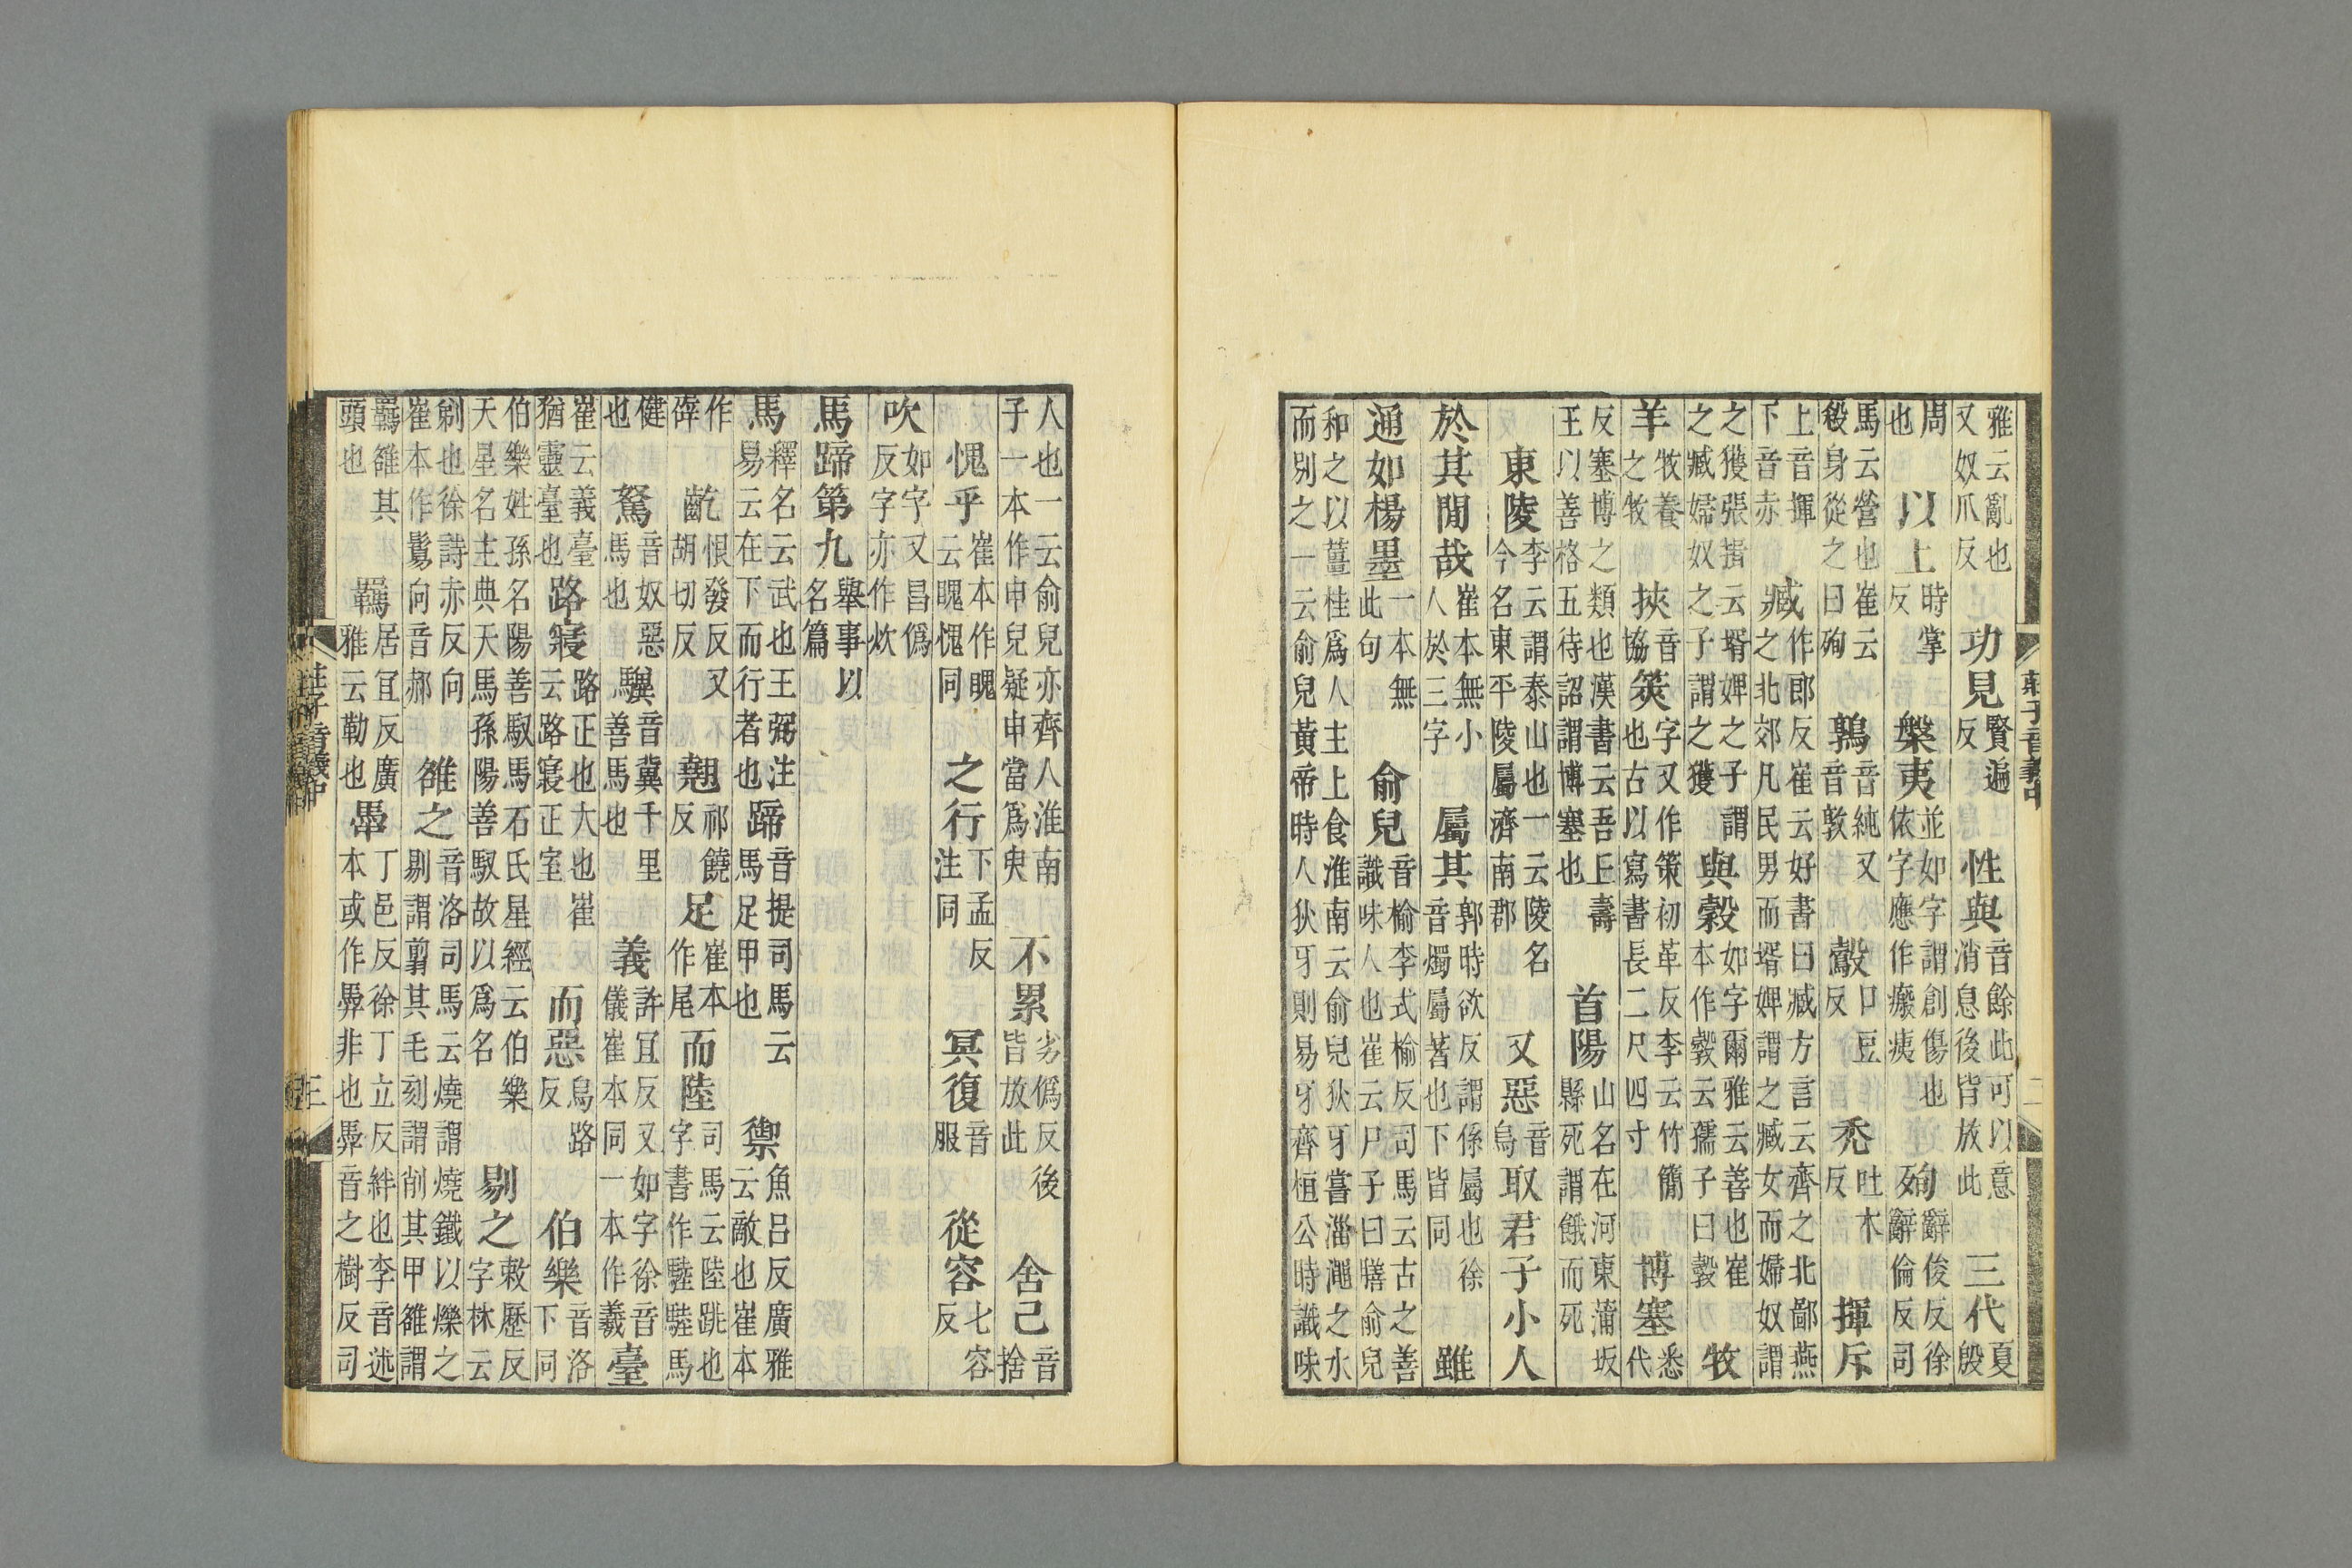 莊子音義中
二
雅云亂也又奴爪反 功見賢遍反 性與音餘此可以意消息後皆放此 三代夏殷
周也 以上時掌反 槃夷並如字謂創傷也依字應作瘢痍 殉辭俊反徐辭倫反司
馬云營也崔云殺身從之曰殉 鶉音純又音敦 鷇口豆反 禿吐木反 揮斥
上音揮下音赤 臧作郎反崔云好書曰臧方言云齊之北鄙燕之北郊凡民男而壻婢謂之臧女而婦奴謂
之獲張揖云壻婢之子謂之臧婦奴之子謂之獲 與穀如字爾雅云善也崔本作㝅云孺子曰㝅 牧
羊牧養之牧 挾音協 筴字又作策初革反李云竹簡也古以寫書長二尺四寸 博塞悉代
反塞博之類也漢書云吾丘壽王以善格五待詔謂博塞也 首陽山名在河東蒲坂縣死謂餓而死
東陵李云謂泰山也一云陵名今名東平陵屬濟南郡 又惡音烏 取君子小人
於其閒哉崔本無小人於三字 屬其郭時欲反謂係屬也徐音燭屬著也下皆同 雖
通如楊墨一本無此句 俞兒音榆李式榆反司馬云古之善識味人也崔云尸子曰膳俞兒
和之以薑桂爲人主上食淮南云俞兒狄牙嘗淄澠之水而別之一云俞兒黃帝時人狄牙則易牙齊桓公時識味
人也一云俞兒亦齊人淮南子一本作申兒疑申當爲臾 不累劣僞反後皆放此 舍己音捨
愧乎崔本作䫥云䫥愧同 之行下孟反注同 冥復音服 從容七容反
吹如字又昌僞反字亦作炊
馬蹄第九舉事以名篇
馬釋名云武也王弼注易云在下而行者也 蹄音提司馬云馬足甲也 禦魚呂反廣雅云敵也崔本
作𨐨 齕恨發反又胡切反 翹祁饒反 足崔本作尾 而陸司馬云陸跳也字書作𩥇𩥇馬
健也 駑音奴惡馬也 驥音冀千里善馬也 義許宜反又如字徐音儀崔本同一本作羲 臺
崔云義臺猶靈臺也 路寢路正也大也崔云路寢正室 而惡烏路反 伯樂音洛下同
伯樂姓孫名陽善馭馬石氏星經云伯樂天星名主典天馬孫陽善馭故以爲名 剔之敕歷反字林云
剃也徐詩赤反向崔本作鬄向音郝 雒之音洛司馬云燒謂燒鐵以爍之剔謂翦其毛刻謂削其甲雒謂
羈雒其頭也 羈居宜反廣雅云勒也 馽丁邑反徐丁立反絆也李音述本或作馵非也馵音之樹反司
莊子音義中
三